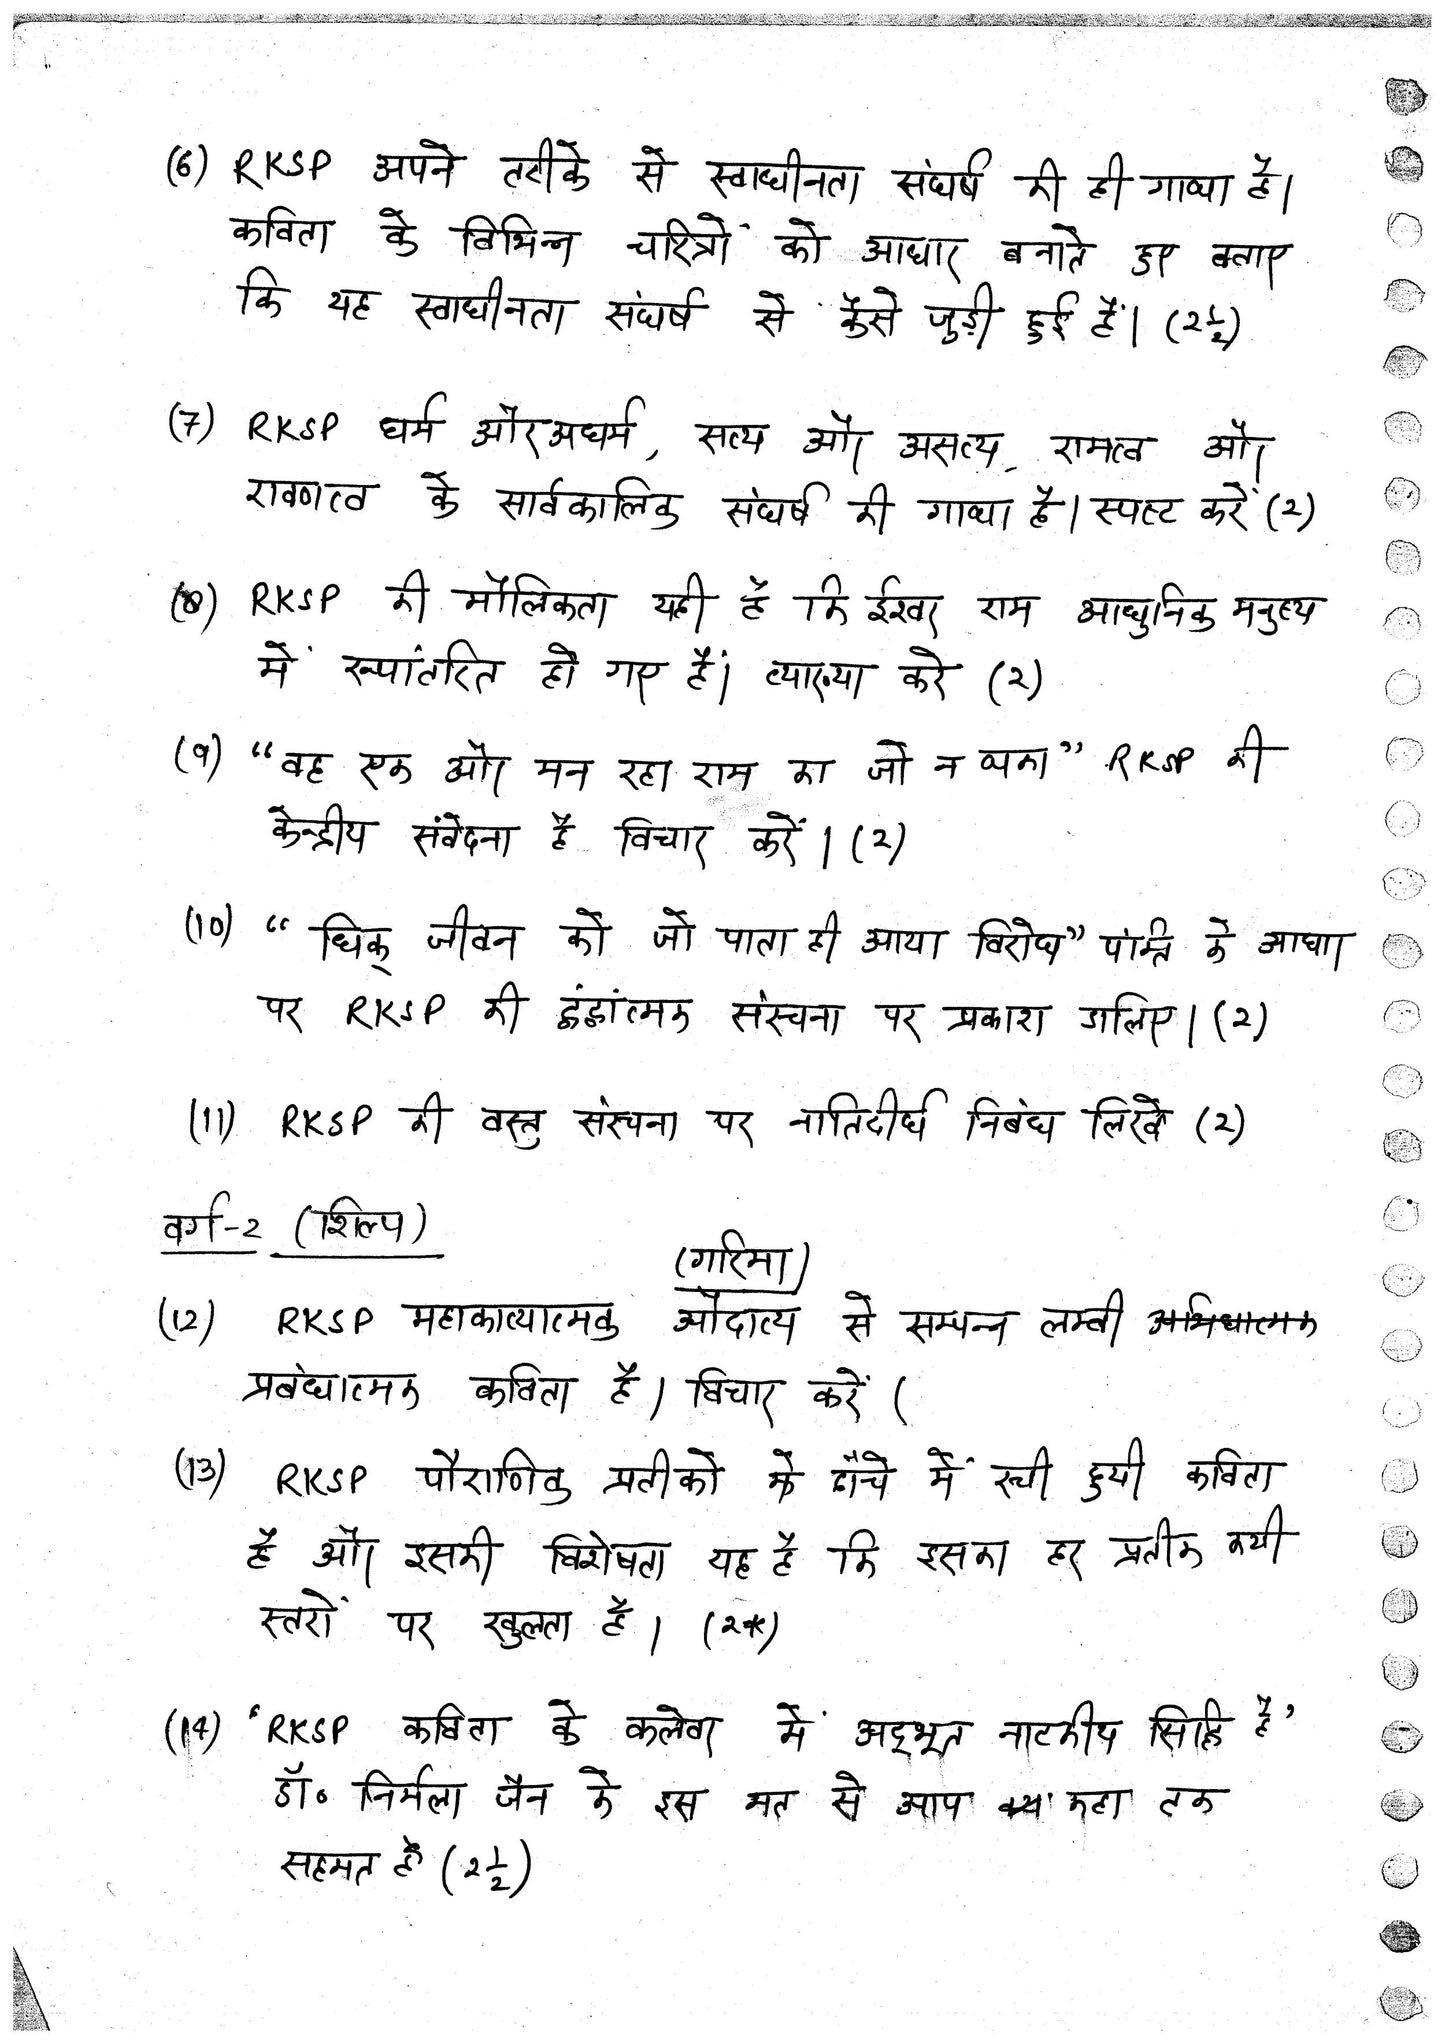 (6) RKSP अपने तरीके से स्वाधीनता संघर्ष की ही गाथा है।
कविता के विभिन्न चरित्रों को आधार बनाते हुए बताए
कि यह स्वाधीनता संघर्ष से कैसे जुड़ी हुई हैं। (2½)
(7) RKSP धर्म और अधर्म, सत्य और असत्य, रामत्व और
रावणत्व के सार्वकालिक संघर्ष की गाथा है। स्पष्ट करें (2)
(8) RKSP की मौलिकता यही है कि ईश्वर राम आधुनिक मनुष्य
में रूपांतरित हो गए हैं। व्याख्या करे (2)
(9) “वह एक और मन रहा राम का जो न थका” RKSP की
केन्द्रीय संवेदना है विचार करें। (2)
(10) “धिक् जीवन को जो पाता ही आया विरोध” पंक्ति के आधार
पर RKSP की द्वंद्वांत्मक संरचना पर प्रकाश डालिए। (2)
(11) RKSP की वस्तु संरचना पर नातिदीर्घ निबंध लिखे (2)
वर्ग-2 (शिल्प)
(गरिमा)
(12) RKSP महाकाव्यात्मक औदात्य से सम्पन्न लम्बी अभिधात्मक
प्रबंधात्मक कविता है। विचार करें (
(13) RKSP पौराणिक प्रतीको के ढाँचे में रची हुयी कविता
है और इसकी विशेषता यह है कि इसका हर प्रतीक कयी
स्तरों पर खुलता है। (2*)
(14) ‘RKSP कविता के कलेवर में अद्भूत नाटकीय सिद्धि है’
डॉ० निर्मला जैन के इस मत से आप क्या कहा तक
सहमत है (2½)